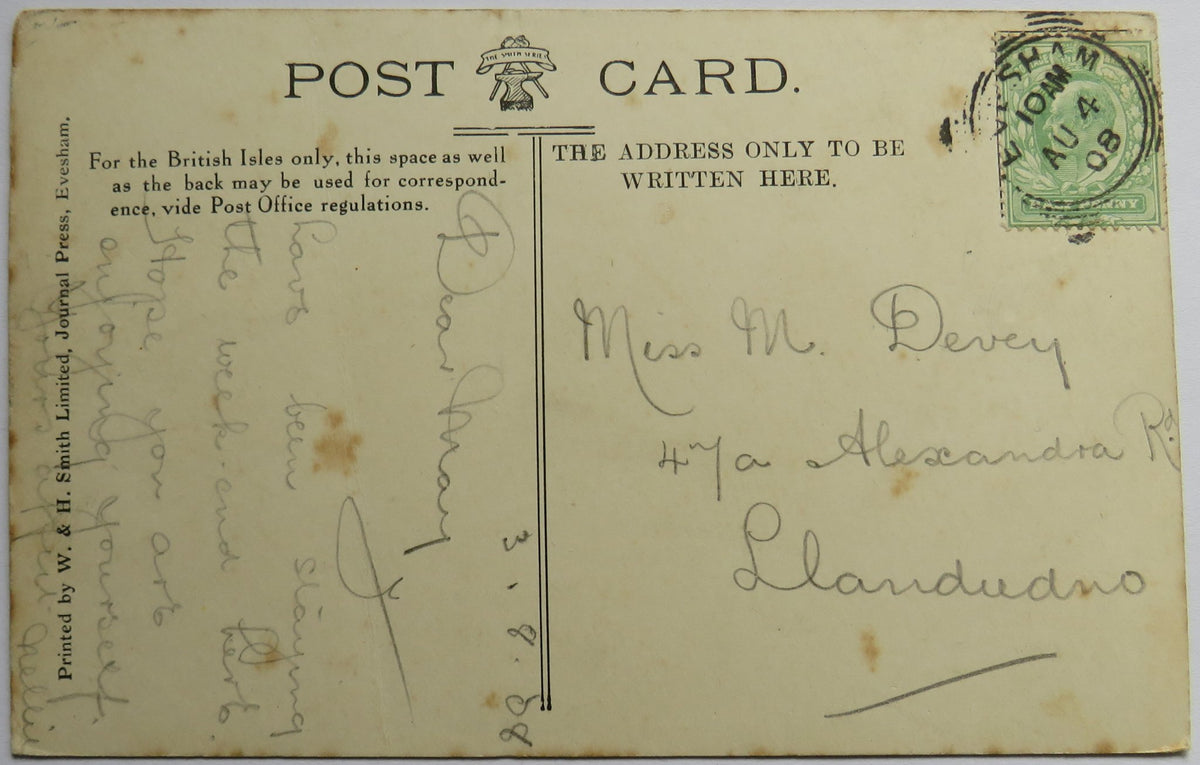 POST CARD.
THE SMITH SERIES
For the British Isles only, this space as well
as the back may be used for correspond-
ence, vide Post Office regulations.
THE ADDRESS ONLY TO BE
WRITTEN HERE.
EVESHAM
10 AM
AU 4
08
HALFPENNY
Miss M. Devey
47a Alexandra Rd
Llandudno
3.8.08
Dear May
I
have been staying
the week-end here.
Hope you are
enjoying yourself.
Yours affect Nellie
Printed by W. & H. Smith Limited, Journal Press, Evesham.